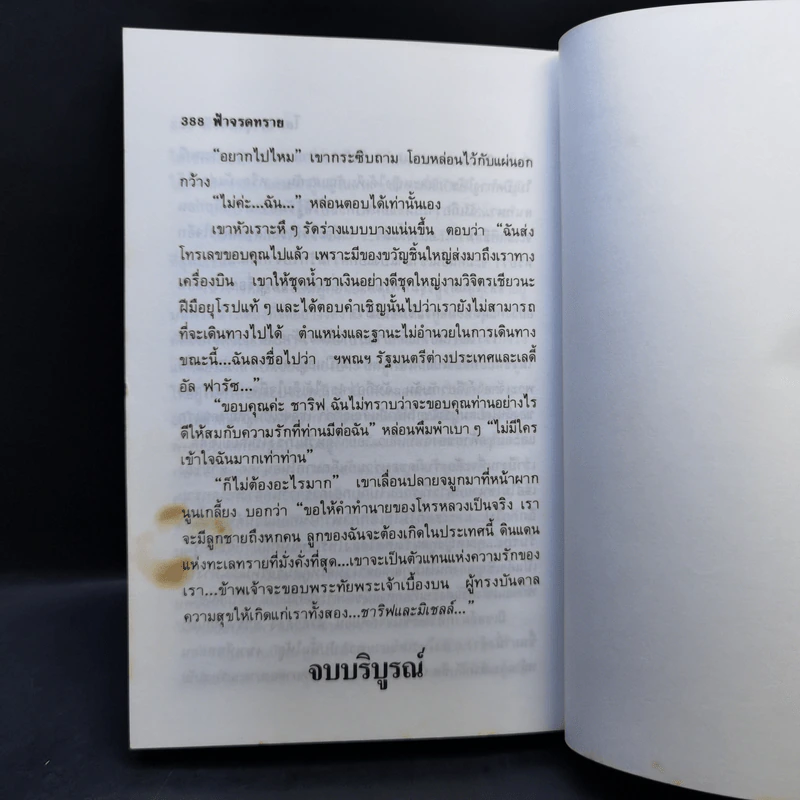 388 ฟ้าจรดทราย
"อยากไปไหม" เขากระซิบถาม โอบหล่อนไว้กับแผ่นอก
กว้าง
"ไม่ค่ะ...ฉัน..." หล่อนตอบได้เท่านั้นเอง
เขาหัวเราะหึ ๆ รัดร่างแบบบางแน่นขึ้น ตอบว่า "ฉันส่ง
โทรเลขขอบคุณไปแล้ว เพราะมีของขวัญชิ้นใหญ่ส่งมาถึงเราทาง
เครื่องบิน เขาให้ชุดน้ำชาเงินอย่างดีชุดใหญ่งามวิจิตรเชียวนะ
ฝีมือยุโรปแท้ ๆ และได้ตอบคำเชิญนั้นไปว่าเรายังไม่สามารถ
ที่จะเดินทางไปได้ ตำแหน่งและฐานะไม่อำนวยในการเดินทาง
ขณะนี้...ฉันลงชื่อไปว่า ฯพณฯ รัฐมนตรีต่างประเทศและเลดี้
อัล ฟารัซ..."
"ขอบคุณค่ะ ชาริฟ ฉันไม่ทราบว่าจะขอบคุณท่านอย่างไร
ดีให้สมกับความรักที่ท่านมีต่อฉัน" หล่อนพึมพำเบา ๆ "ไม่มีใคร
เข้าใจฉันมากเท่าท่าน"
"ก็ไม่ต้องอะไรมาก" เขาเลื่อนปลายจมูกมาที่หน้าผาก
นูนเกลี้ยง บอกว่า "ขอให้คำทำนายของโหรหลวงเป็นจริง เรา
จะมีลูกชายถึงหกคน ลูกของฉันจะต้องเกิดในประเทศนี้ ดินแดน
แห่งทะเลทรายที่มั่งคั่งที่สุด...เขาจะเป็นตัวแทนแห่งความรักของ
เรา...ข้าพเจ้าจะขอบพระทัยพระเจ้าเบื้องบน ผู้ทรงบันดาล
ความสุขให้เกิดแก่เราทั้งสอง...ชาริฟและมิเชลล์..."
จบบริบูรณ์